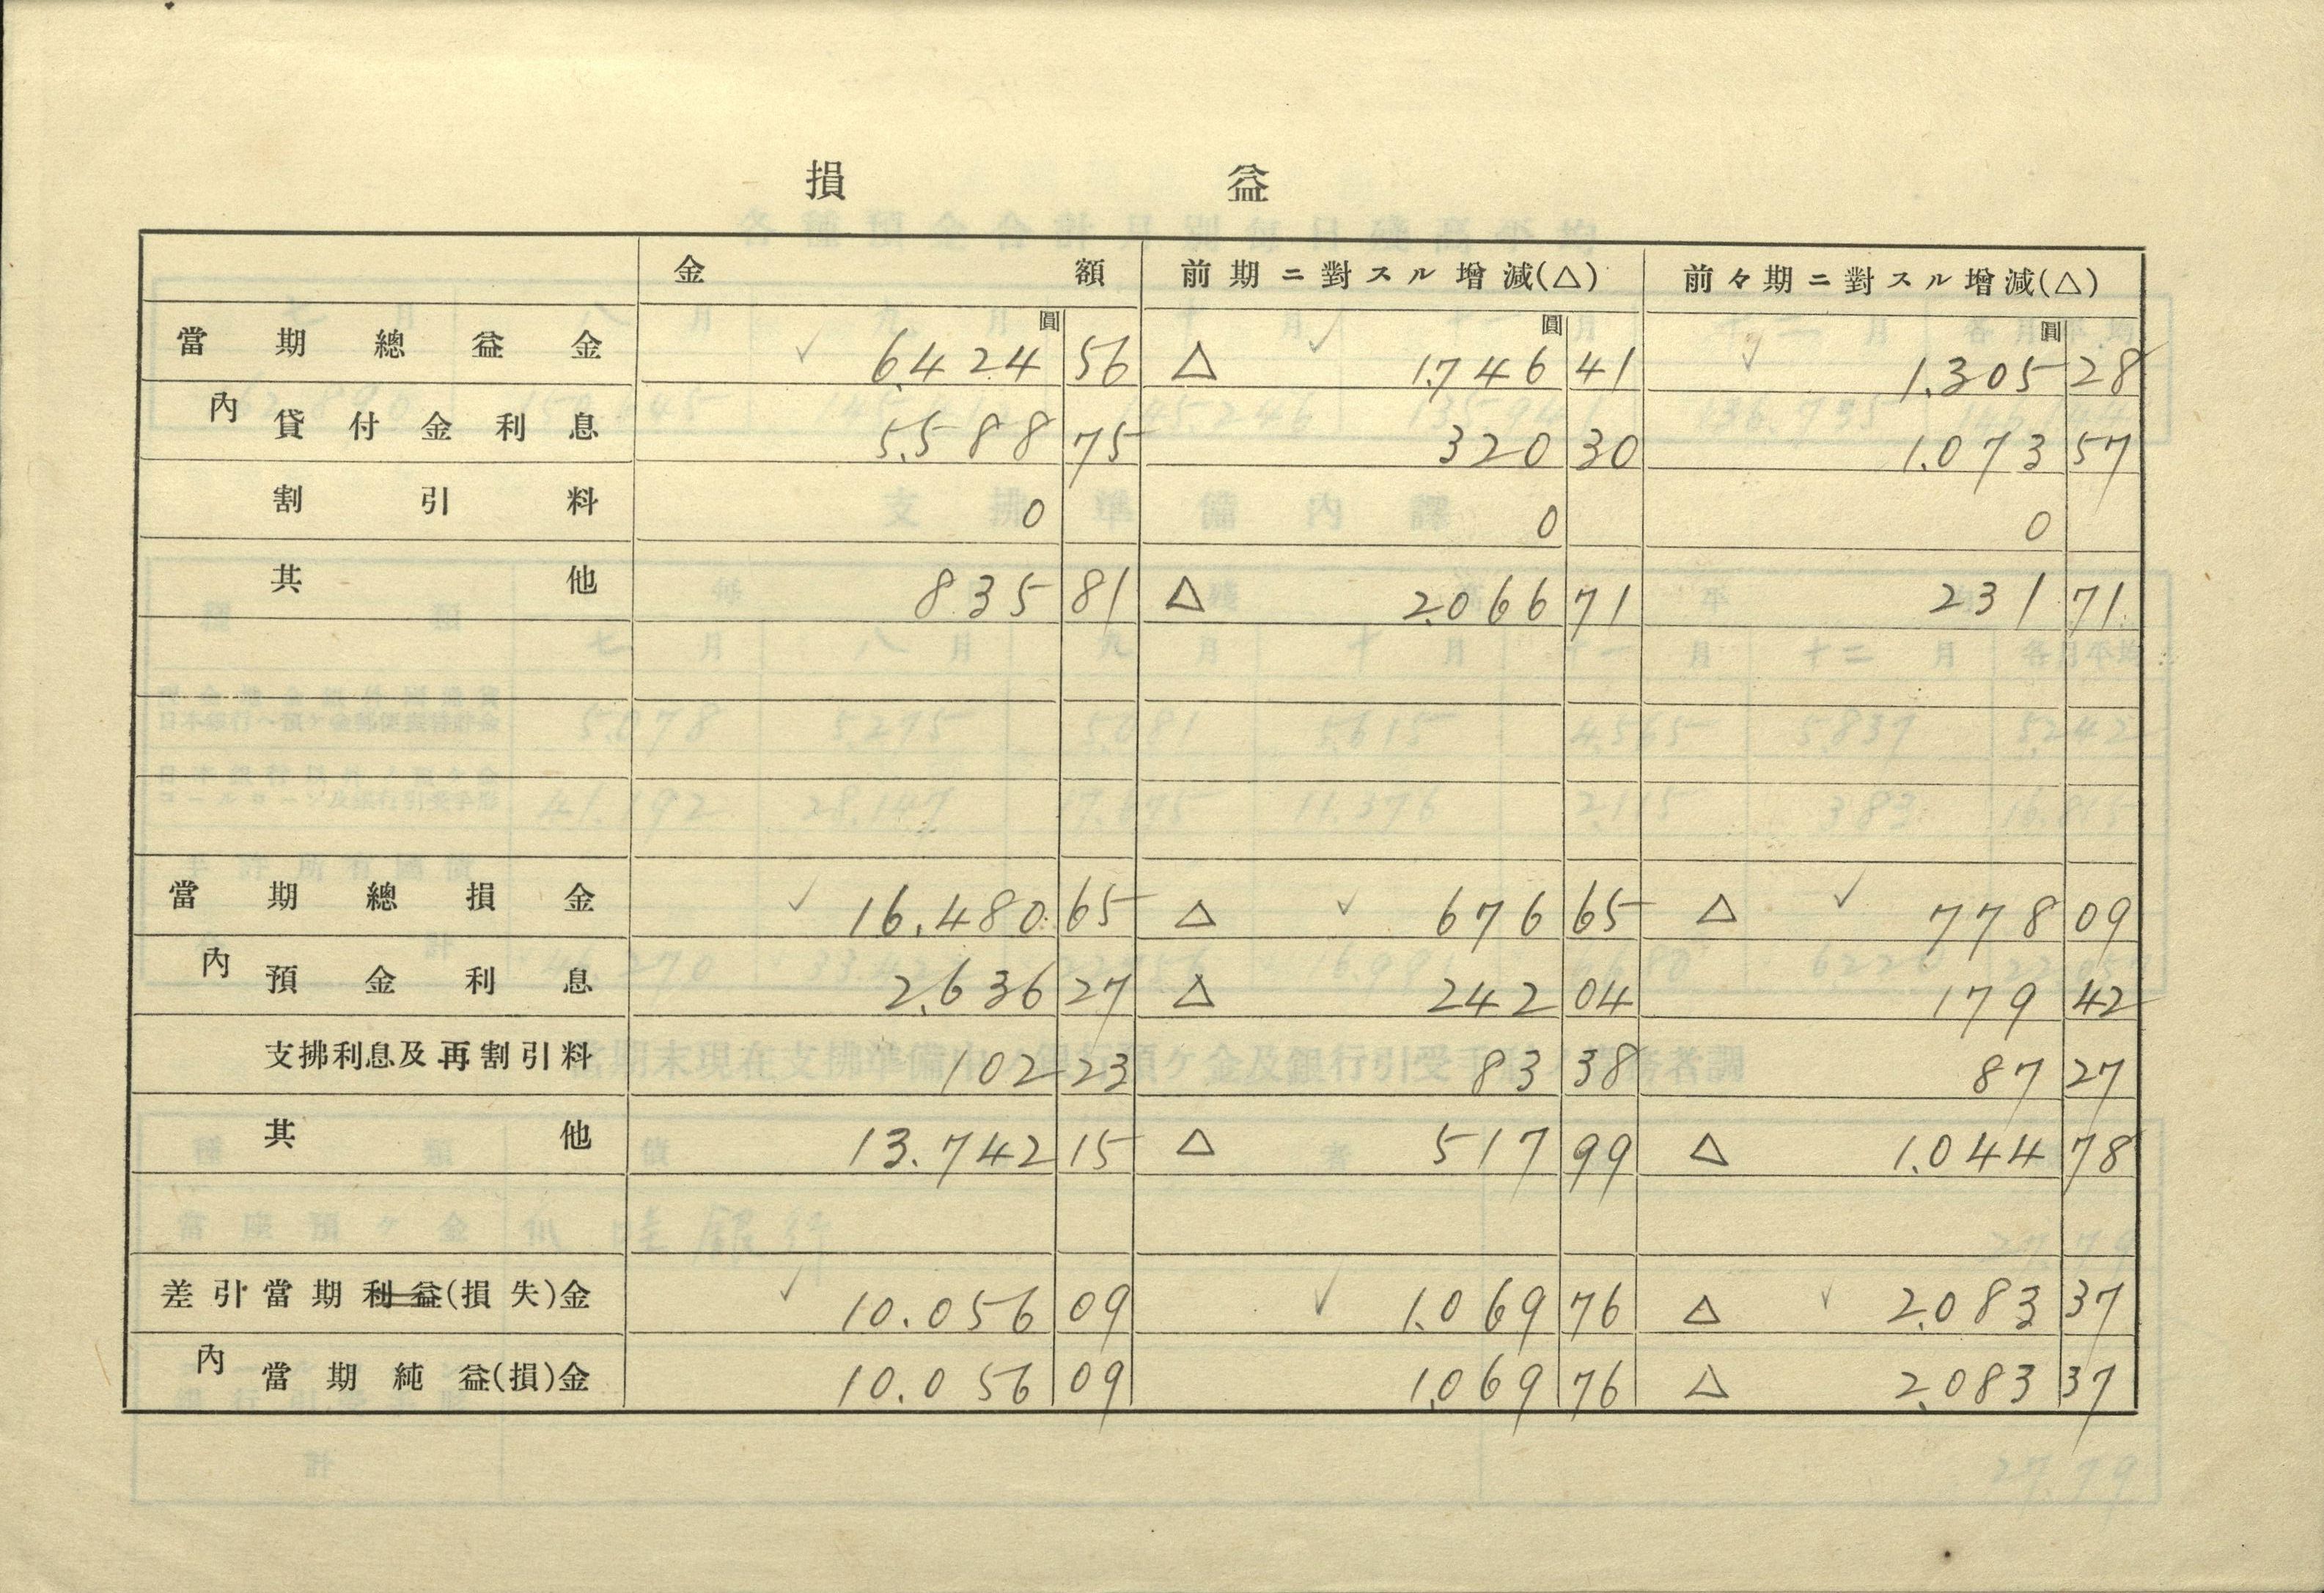 損 益
金 額 前期ニ對スル增減(△) 前々期ニ對スル增減(△)
當期總益金 圓 6,424 56 △ 圓 1,746 41 圓 1,305 28
內 貸付金利息 5,588 75 320 30 1,073 57
割引料 0 0 0
其他 835 81 △ 2,066 71 231 71
當期總損金 16,480 65 △ 676 65 △ 778 09
內 預金利息 2,636 27 △ 242 04 179 42
支拂利息及再割引料 102 23 83 38 87 27
其他 13,742 15 △ 517 99 △ 1,044 78
差引當期利益(損失)金 10,056 09 1,069 76 △ 2,083 37
內 當期純益(損)金 10,056 09 1,069 76 △ 2,083 37